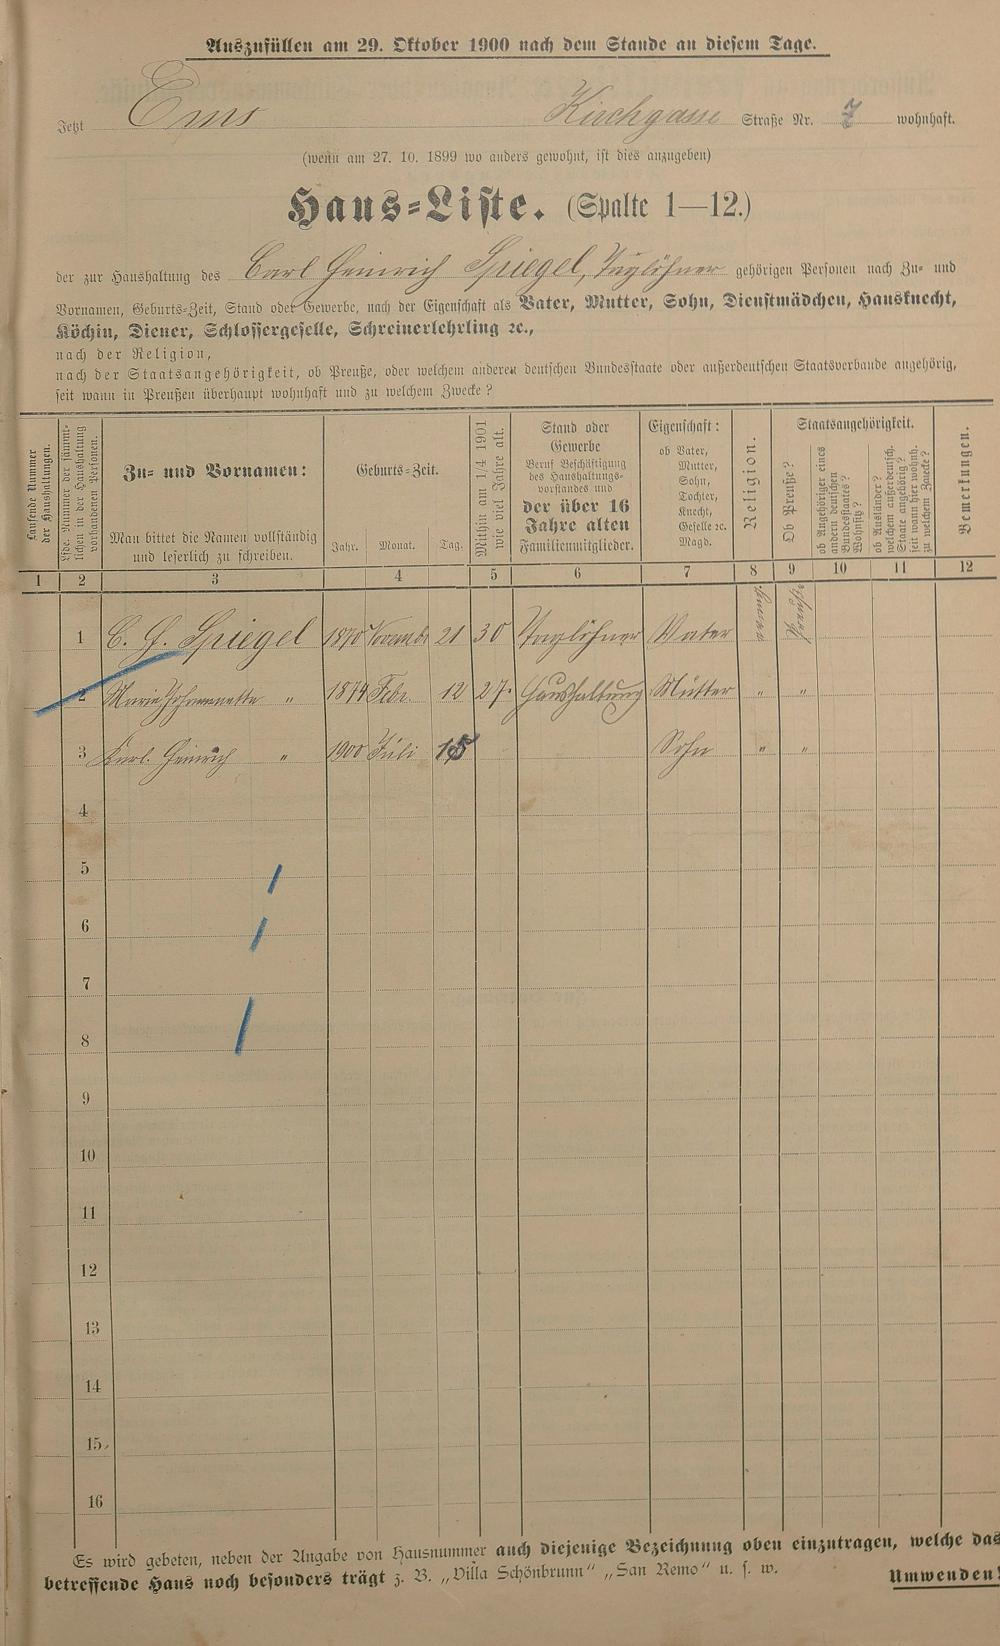 Auszufüllen am 29. Oktober 1900 nach dem Stande an diesem Tage.
Jetzt Ems Kirchgasse Straße Nr. 7 wohnhaft.
(wenn am 27. 10. 1899 wo anders gewohnt, ist dies anzugeben)
Haus-Liste. (Spalte 1—12.)
der zur Haushaltung des Carl Heinrich Spiegel, Taglöhner gehörigen Personen nach Zu- und
Vornamen, Geburts-Zeit, Stand oder Gewerbe, nach der Eigenschaft als Vater, Mutter, Sohn, Dienstmädchen, Hausknecht,
Köchin, Diener, Schlossergeselle, Schreinerlehrling ꝛc.,
nach der Religion,
nach der Staatsangehörigkeit, ob Preuße, oder welchem anderen deutschen Bundesstaate oder außerdeutschen Staatsverbande angehörig,
seit wann in Preußen überhaupt wohnhaft und zu welchem Zwecke?
Laufende Nummer
der Haushaltungen.
Lfde. Nummer der sämmt-
lichen in der Haushaltung
vorhandenen Personen.
Zu- und Vornamen:
Man bittet die Namen vollständig
und leserlich zu schreiben.
Geburts-Zeit.
Jahr. Monat. Tag.
Mithin am 1/4 1901
wie viel Jahre alt.
Stand oder
Gewerbe
Beruf Beschäftigung
des Haushaltungs-
vorstandes und
der über 16
Jahre alten
Familienmitglieder.
Eigenschaft:
ob Vater,
Mutter,
Sohn,
Tochter,
Knecht,
Geselle ꝛc.
Magd.
Religion.
Staatsangehörigkeit.
Ob Preuße?
ob Angehöriger eines
andern deutschen
Bundesstaates?
Wohnsitz?
ob Ausländer?
welchem außerdeutsch.
Staate angehörig?
seit wann hier wohnh.
zu welchem Zwecke?
Bemerkungen.
1 2 3 4 5 6 7 8 9 10 11 12
1 C. H. Spiegel 1870 Novembr 21 30 Taglöhner Vater
2 Marie Johannette " 1874 Febr. 12 27. Haushaltung Mutter " "
3 Karl. Heinrich " 1900 Juli 15 Sohn " "
4
5
6
7
8
9
10
11
12
13
14
15
16
Es wird gebeten, neben der Angabe von Hausnummer auch diejenige Bezeichnung oben einzutragen, welche das
betreffende Haus noch besonders trägt z. B. „Villa Schönbrunn" „San Remo" u. s. w.
Umwenden!